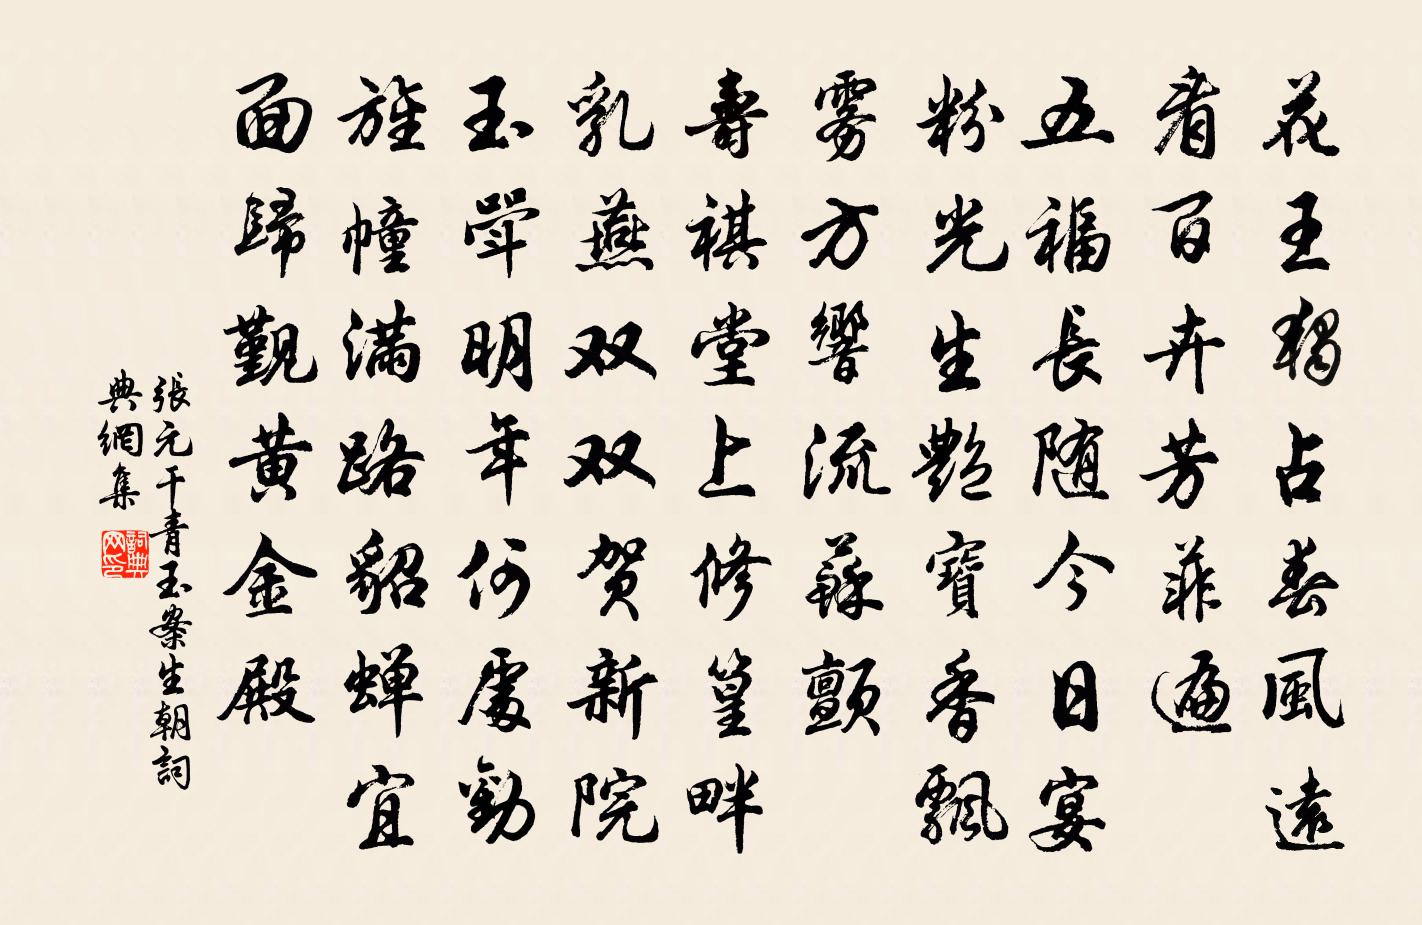 花王獨占春風遠
看百卉芳菲遍
五福長随今日宴
粉光生艷寶香飄
雾方響流蘇顫
壽祺堂上修篁畔
乳燕双双贺新院
玉斝明年何處勸
旌幢满路貂蝉宜
面歸覲黄金殿
張元干青玉案生朝詞
典網集
詞典
网印